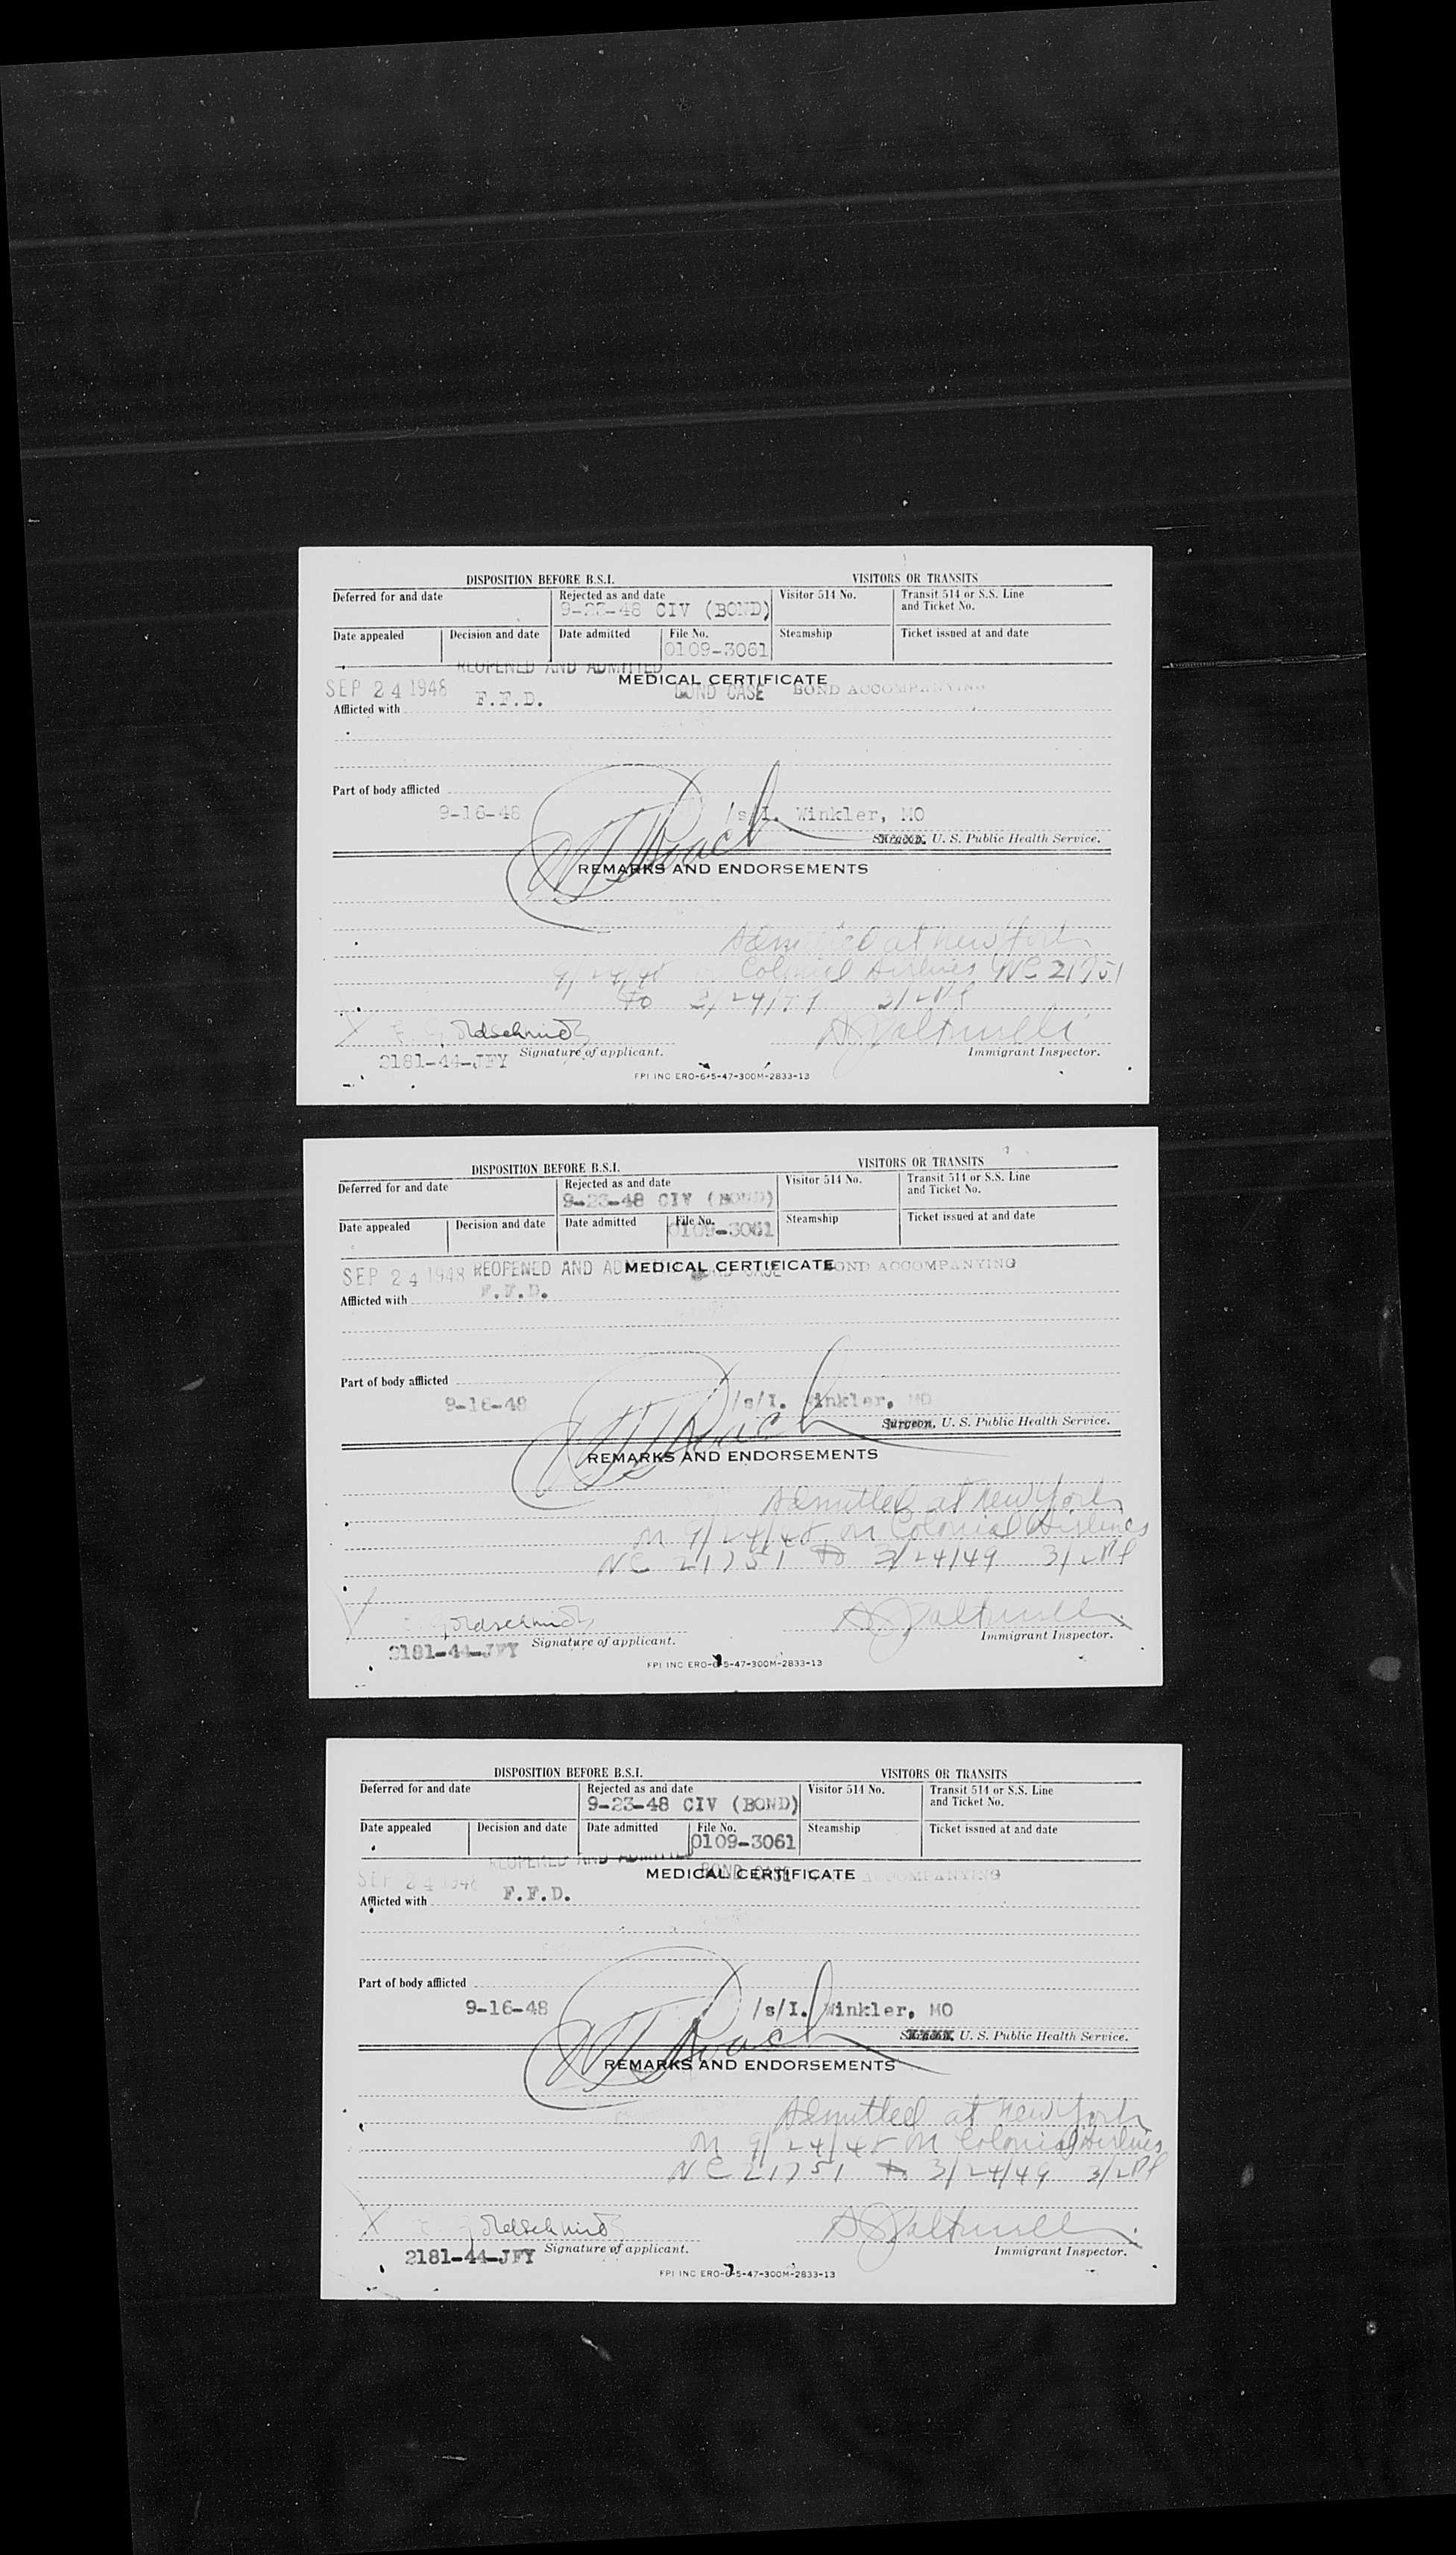 DISPOSITION BEFORE B.S.I. VISITORS OR TRANSITS
Deferred for and date Rejected as and date Visitor 514 No. Transit 514 or S.S. Line and Ticket No.
9-23-48 CIV (BOND)
Date appealed Decision and date Date admitted File No. Steamship Ticket issued at and date
0109-3061
REOPENED AND ADMITTED
MEDICAL CERTIFICATE
SEP 24 1948 BOND CASE BOND ACCOMPANYING
Afflicted with F.F.D.
Part of body afflicted
9-16-48 /s/I. Winkler, MO
Surgeon, U. S. Public Health Service.
REMARKS AND ENDORSEMENTS
Admitted at New York
9/24/48 Colonial Airlines NC 21751
to 3/24/49 3/2
Goldschmidt
2181-44-JFY Signature of applicant. Immigrant Inspector.
FPI INC ERO-6-5-47-300M-2833-13
DISPOSITION BEFORE B.S.I. VISITORS OR TRANSITS
Deferred for and date Rejected as and date Visitor 514 No. Transit 514 or S.S. Line and Ticket No.
9-23-48 CIV (BOND)
Date appealed Decision and date Date admitted File No. Steamship Ticket issued at and date
0109-3061
SEP 24 1948 REOPENED AND AD MEDICAL CERTIFICATE BOND CASE BOND ACCOMPANYING
Afflicted with F.F.D.
Part of body afflicted
9-16-48 /s/I. Winkler, MO
Surgeon, U. S. Public Health Service.
REMARKS AND ENDORSEMENTS
Admitted at New York
on 9/24/48 on Colonial Airlines
NC 21751 to 3/24/49 3/2
Goldschmidt
2181-44-JFY Signature of applicant. Immigrant Inspector.
FPI INC ERO-6-5-47-300M-2833-13
DISPOSITION BEFORE B.S.I. VISITORS OR TRANSITS
Deferred for and date Rejected as and date Visitor 514 No. Transit 514 or S.S. Line and Ticket No.
9-23-48 CIV (BOND)
Date appealed Decision and date Date admitted File No. Steamship Ticket issued at and date
0109-3061
REOPENED AND ADMITTED
MEDICAL CERTIFICATE
SEP 24 1948 BOND CASE BOND ACCOMPANYING
Afflicted with F.F.D.
Part of body afflicted
9-16-48 /s/I. Winkler, MO
Surgeon, U. S. Public Health Service.
REMARKS AND ENDORSEMENTS
Admitted at New York
on 9/24/48 on Colonial Airlines
NC 21751 to 3/24/49 3/2
E Goldschmidt
2181-44-JFY Signature of applicant. Immigrant Inspector.
FPI INC ERO-6-5-47-300M-2833-13